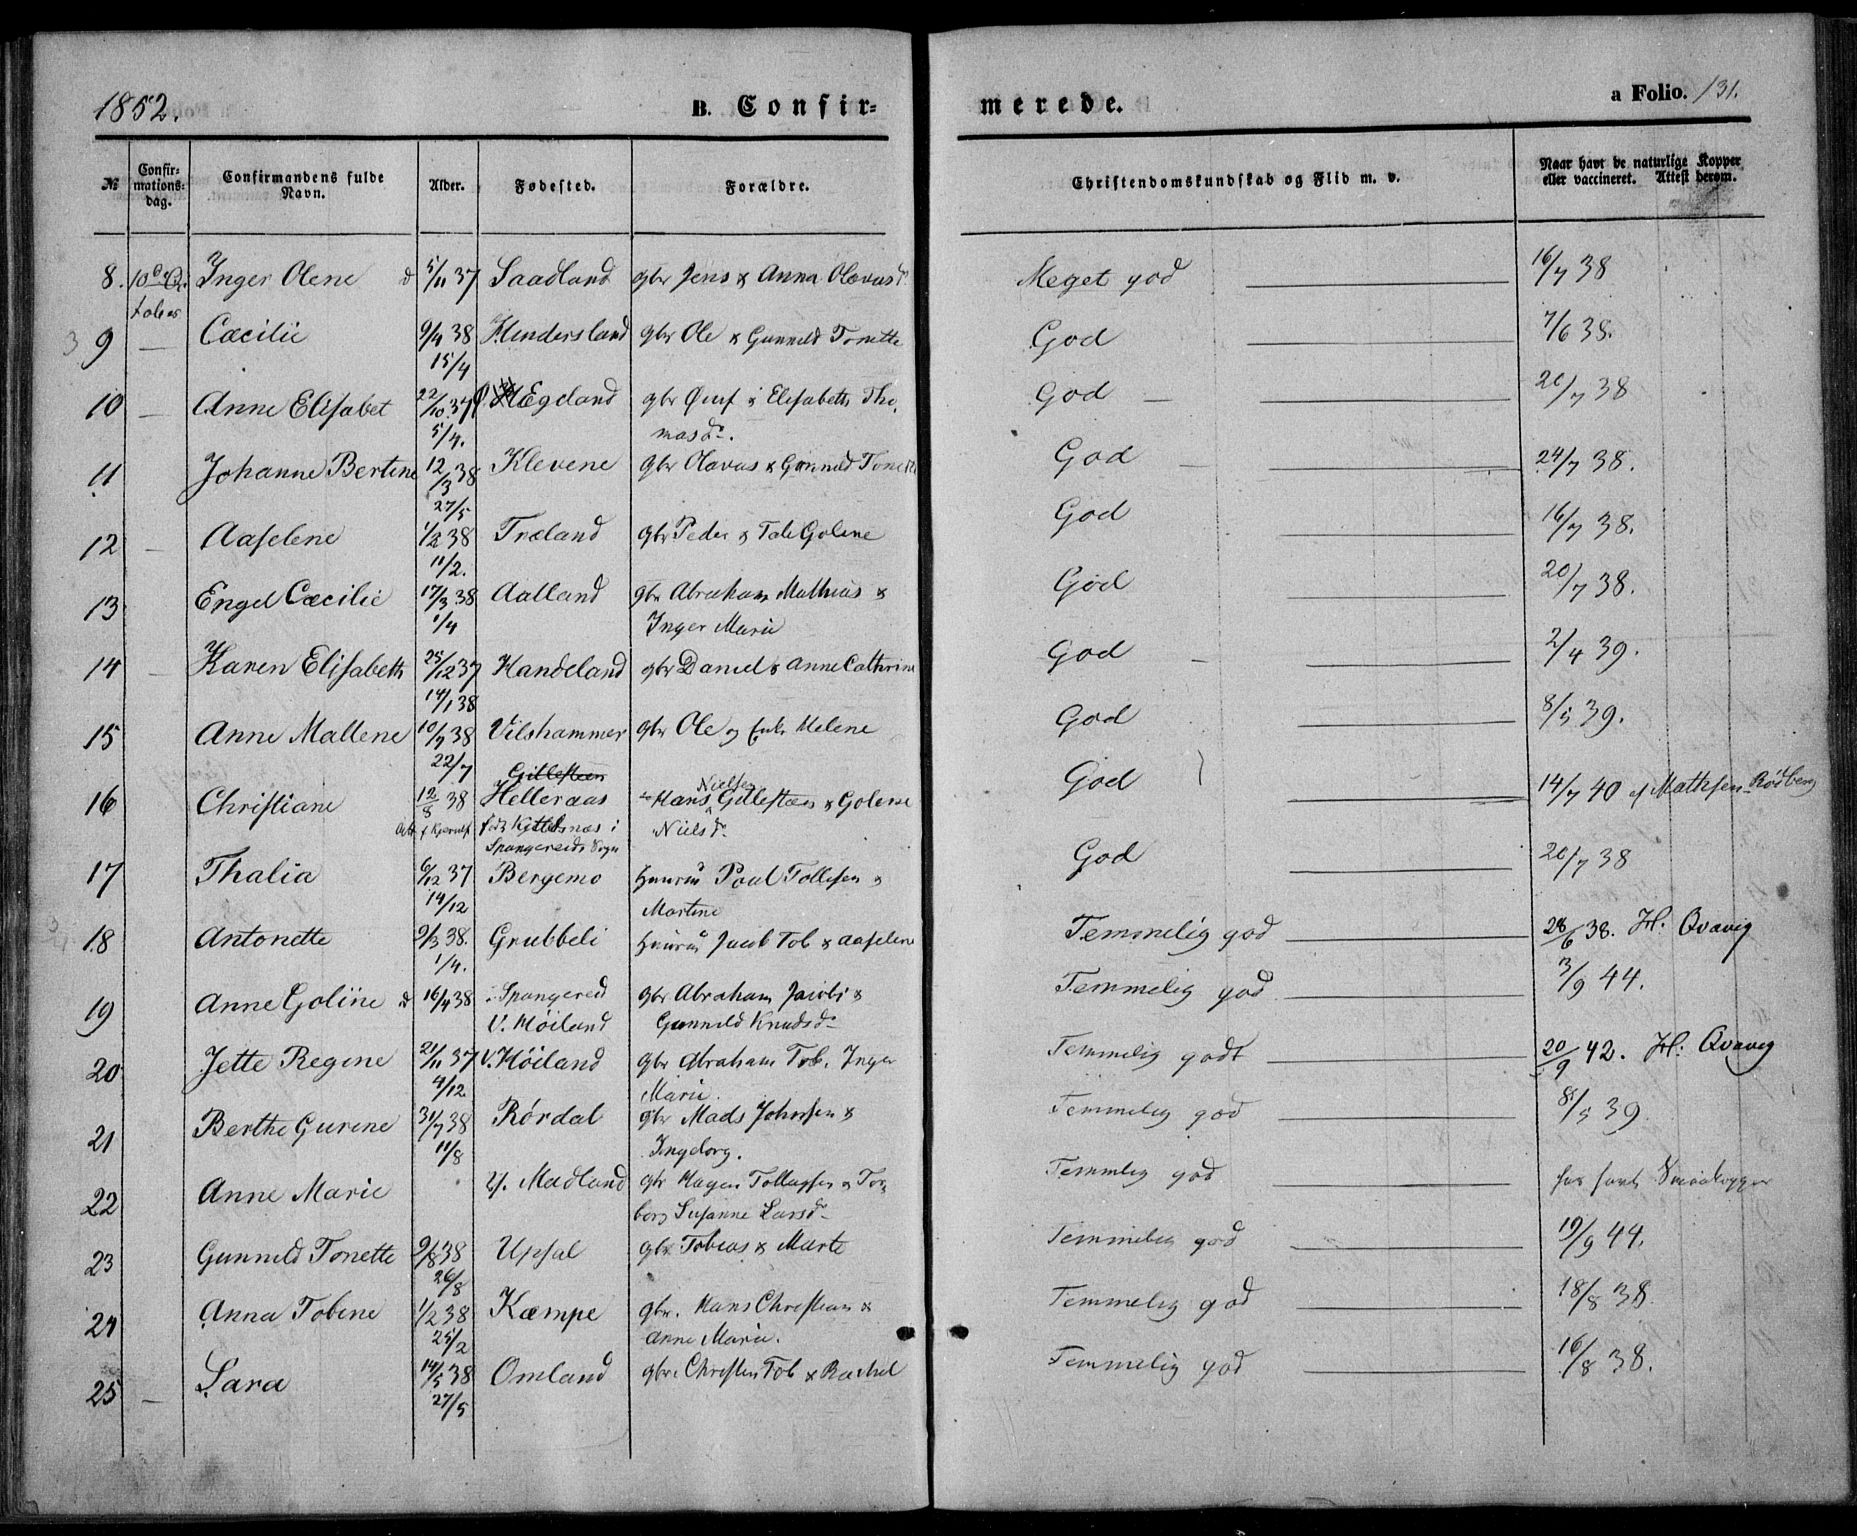 1852.
B. Confir=
merede.
a Folio. 131.
№
Confir-
mations-
dag.
Confirmandens fulde
Navn.
Alder.
Fødested.
Forældre.
Christendomskundskab og Flid m. v.
Naar havt de naturlige Kopper
eller vaccineret. Attest derom.
8. Inger Olene d 5/11 37 Saadland gbr Jens & Anna Olavusd. Meget god 16/7 38
9 — Cæcilie 9/4 38 Hindersland gbr Ole & Gunneld Tonette God 7/6 38.
15/4
10 — Anne Elisabet 22/10 37 Ø. Hægeland gbr Omf & Elisabeth Tho- God — 20/7 38
5/4. masd.
11 Johanne Bertine 12/3 38 Klevene gbr Olavus & Gunneld Tonette God — 24/7 38.
27/5
12 — Aaselene 1/2 38 Træland gbr Peder & Tale Golene God 16/7 38.
11/2.
13 Engel Cæcilie 17/3 38 Aalland gbr Abraham Mathias & God 20/7 38.
1/4 Inger Marie
14 — Karen Elisabeth 25/12 37 Handeland gbr Daniel & Anne Cathrine God — 2/4 39.
14/1 38
15 Anne Mallene 10/7 38 Vilshammer gbr Ole og Helene God 8/5 39.
22/7 Gillesteen Nielsen
16 Christiane 12/8 38 Helleraas Hans Gillesteen & Golene God 14/7 40 af Mathsen Rødberg
født Kittelsnæs i Nielsd.
Spangereids Sogn
17 Thalia 6/12 37 Bergemo Poul Tollefsen & God 20/7 38
14/12 Martine
18 Antonette 9/3 38. Grubbeli Jacob Tob & Aaselene Temmelig god 28/6 38. H. Qvavig
1/4.
19 Anne Goline d 16/4 38 i Spangereid gbr Abraham Jacobs & Temmelig god 3/9 44.
V. Høiland Gunneld Knudsd.
20 Jette Regine 21/11 37 V. Høiland gbr Abraham Tob. Inger Temmelig godt 20/9 42. H: Qvavig
4/12 Marie.
21 Berthe Gurine 31/7 38 Rørdal gbr Mads Johnsen & Temmelig god 8/5 39.
11/8 Ingeborg.
22 Anne Marie Y. Madland gbr Hagen Tollagsen & Tor- Temmelig god har havt Smaakopper
borg Susanne Larsd.
23 Gunneld Tonette 9/8 38 Upsal gbr Tobias & Marte Temmelig god 19/9 44.
26/8
24 Anna Tobine 1/2 38 Kæmpe gbr. Hans Christian & Temmelig god 18/8 38
25/2 Anne Marie.
25 — Sara 14/5 38 Omland gbr. Christen Tob & Rachel Temmelig god 16/8 38.
27/5